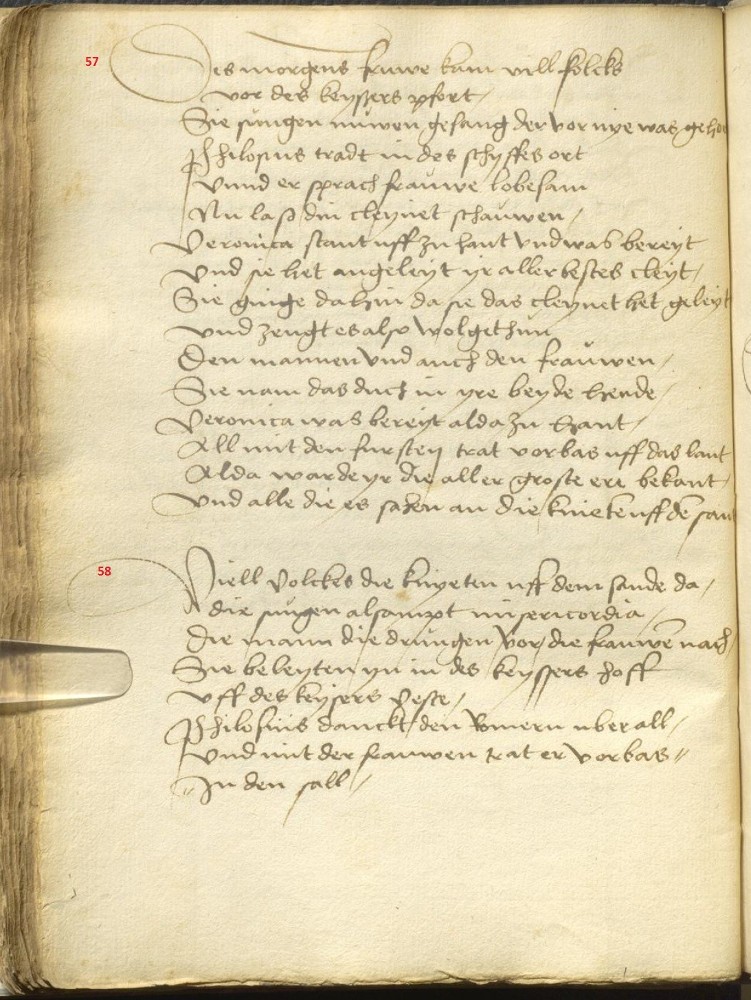 57
Des morgens fruwe kam vill folcks
vor des keyssers pfort /
Sie sungen nuwen gesang der vor nye was geho
Philosius tradt in des schyffes ort
Vnnd er sprach frauwe lobesam
Nu lass din cleynet schauwen /
Veronica stant uff zu hant vnd was bereyt
Vnd sie het angeleyt yr aller bestes cleyt /
Sie ginge dahin da sie das cleynet het geleyt
vnd zeugt es also wolgethun
Den mannen vnd auch den frauwen /
Sie nam das duch in yre beyde hende /
Veronica was bereyt alda zu hant /
All mit den fursten trat vorbas uff das lant
Alda warde yr die aller groste ere bekant /
vnd alle die es sahen an die knieten uff de san
58
Viell volckes die knyeten uff dem sande da /
die sungen alsampt misericordia /
Die mann die drungen vor die frauwen nach /
Sie beleyten yn in des keyssers hoff
vff des keysers veste /
Philosius danckt den Romern uber all /
Vnd mit der frauwen trat er vorbas //
// In den sall //